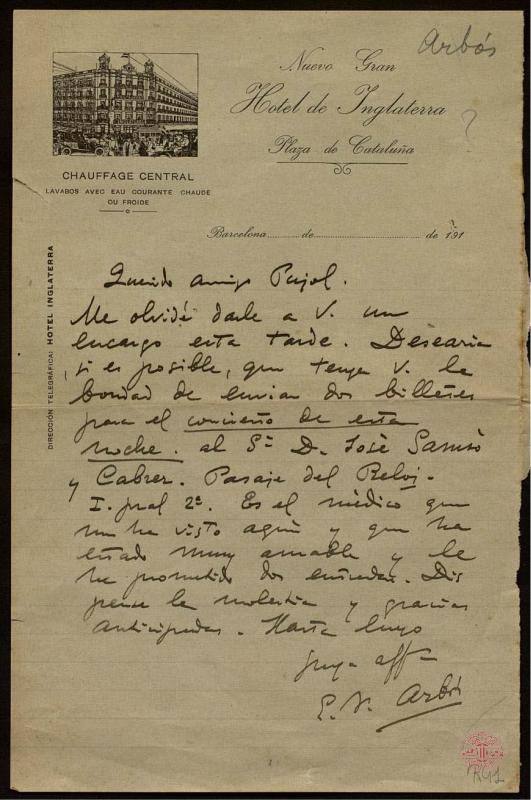 Arbós
Nuevo Gran
Hotel de Inglaterra
?
Plaza de Cataluña
CHAUFFAGE CENTRAL
LAVABOS AVEC EAU COURANTE CHAUDE
OU FROIDE
Barcelona de de 191
DIRECCIÓN TELEGRÁFICA: HOTEL INGLATERRA
Querido amigo Pujol.
Me olvidé darle a V. un
encargo esta tarde. Desearia
, si es posible, que tenga V. la
bondad de enviar dos billetes
para el concierto de esta
noche. al Sr D. José
y Cabrer. Pasaje del Reloj.
I. pral 2ª. Es el médico que
me ha visto aqui y que ha
estado muy amable y le
he prometido dos entradas. Dis
pense la molestia y gracias
anticipadas. Hasta luego
suyo affo
E. F. Arbós